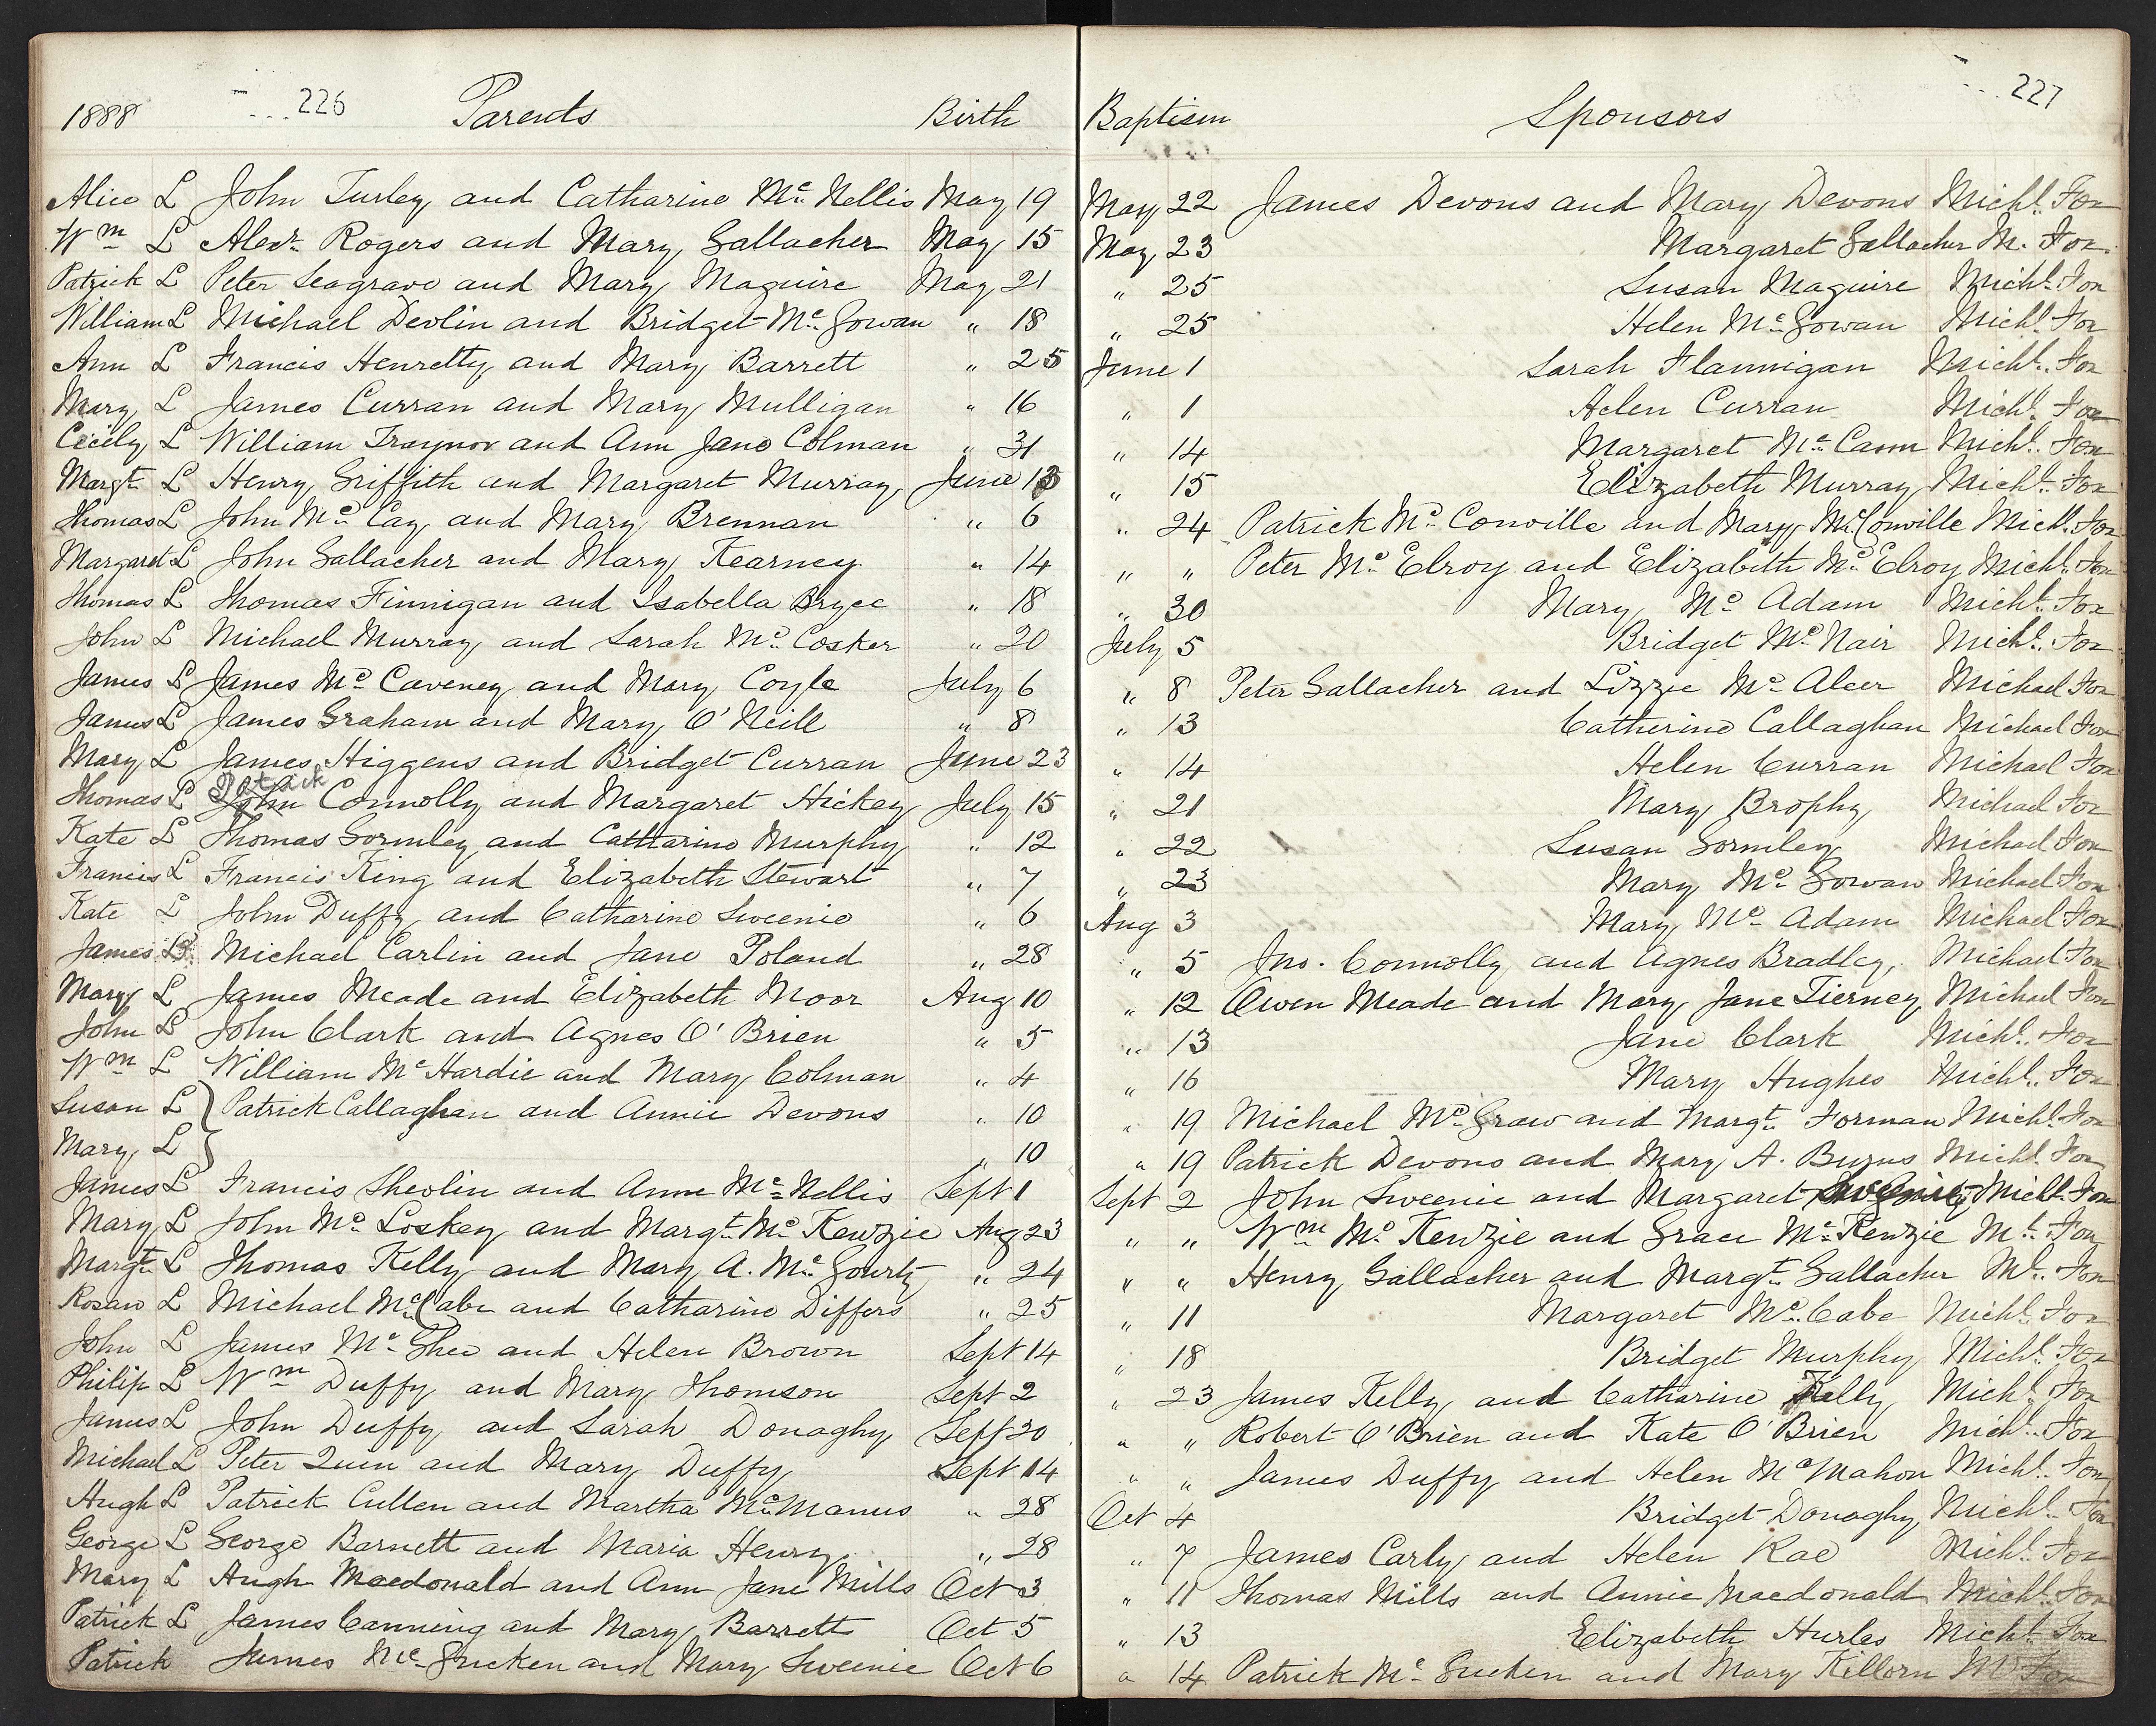 1888 226 Parents Birth
Alice L John Turley and Catharine Mc Nellis May 19
Wm L Alexr Rogers and Mary Gallacher May 15
Patrick L Peter Seagrave and Mary Maguire May 21
William L Michael Devlin and Bridget Mc Gowan " 18
Ann L Francis Henretty and Mary Barrett " 25
Mary L James Curran and Mary Mulligan " 16
Cecily L William Traynor and Ann Jane Colman " 31
Margt L Henry Griffith and Margaret Murray June 13
Thomas L John Mc Cay and Mary Brennan " 6
Margaret L John Gallacher and Mary Kearney " 14
Thomas L Thomas Finnigan and Isabella Bryce " 18
John L Michael Murray and Sarah Mc Cosker " 20
James L James Mc Caveney and Mary Coyle July 6
James L James Graham and Mary O'Neill " 8
Mary L James Higgens and Bridget Curran June 23
Patrick
Thomas L John Connolly and Margaret Hickey July 15
Kate L Thomas Gormley and Catharine Murphy " 12
Francis L Francis King and Elizabeth Stewart " 7
Kate L John Duffy and Catharine Sweenie " 6
James L Michael Carlin and Jane Poland " 28
Mary L James Meade and Elizabeth Moor Aug 10
John L John Clark and Agnes O'Brien " 5
Wm L William Mc Hardie and Mary Colman " 4
Susan L Patrick Callaghan and Annie Devons " 10
Mary L " 10
James L Francis Shevlin and Anne Mc Nellis Sept 1
Mary L John Mc Loskey and Margt Mc Kenzie Aug 23
Margt L Thomas Kelly and Mary A. Mc Gourty " 24
Rosan L Michael Mc Cabe and Catharine Differs " 25
John L James Mc Ghee and Helen Brown Sept 14
Philip L Wm Duffy and Mary Thomson Sept 2
James L John Duffy and Sarah Donaghy Sept 20
Michael L Peter Quen and Mary Duffy Sept 14
Hugh L Patrick Cullen and Martha Mc Manus " 28
George L George Barnett and Maria Henry " 28
Mary L Hugh Macdonald and Ann Jane Mills Oct 3
Patrick L James Canning and Mary Barrett Oct 5
Patrick James Mc Gucken and Mary Sweenie Oct 6
Baptism Sponsors 227
May 22 James Devons and Mary Devons Michl. Fox
May 23 Margaret Gallacher M. Fox
" 25 Susan Maguire Michl. Fox
" 25 Helen Mc Gowan Michl. Fox
June 1 Sarah Flannigan Michl. Fox
" 1 Helen Curran Michl. Fox
" 14 Margaret Mc Cann Michl. Fox
" 15 Elizabeth Murray Michl. Fox
" 24 Patrick Mc Conville and Mary Mc Conville Michl. Fox
" " Peter Mc Elroy and Elizabeth Mc Elroy Michl. Fox
" 30 Mary Mc Adam Michl. Fox
July 5 Bridget Mc Nair Michl. Fox
" 8 Peter Gallacher and Lizzie Mc Aleer Michael Fox
" 13 Catherine Callaghan Michael Fox
" 14 Helen Curran Michael Fox
" 21 Mary Brophy Michael Fox
" 22 Susan Gormley Michael Fox
" 23 Mary Mc Gowan Michael Fox
Aug 3 Mary Mc Adam Michael Fox
" 5 Jno. Connolly and Agnes Bradley, Michael Fox
" 12 Owen Meade and Mary Jane Tierney Michael Fox
" 13 Jane Clark Michl. Fox
" 16 Mary Hughes Michl. Fox
" 19 Michael Mc Graw and Margt Forman Michl. Fox
" 19 Patrick Devons and Mary A. Burns Michl. Fox
Sept 2 John Sweenie and Margaret Michl. Fox
" " Wm Mc Kenzie and Grace Mc Kenzie Ml. Fox
" " Henry Gallacher and Margt Gallacher Ml. Fox
" 11 Margaret Mc Cabe Michl. Fox
" 18 Bridget Murphy Michl. Fox
" 23 James Kelly and Catharine Kelly Michl. Fox
" " Robert O'Brien and Kate O'Brien Michl. Fox
" " James Duffy and Helen Mc Mahon Michl. Fox
Oct 4 Bridget Donaghy, Michl. Fox
" 7 James Carly and Helen Rae Michl. Fox
" 11 Thomas Mills and Annie Macdonald Michl. Fox
" 13 Elizabeth Hurles Michl. Fox
" 14 Patrick Mc Gucken and Mary Killorn Ml Fox